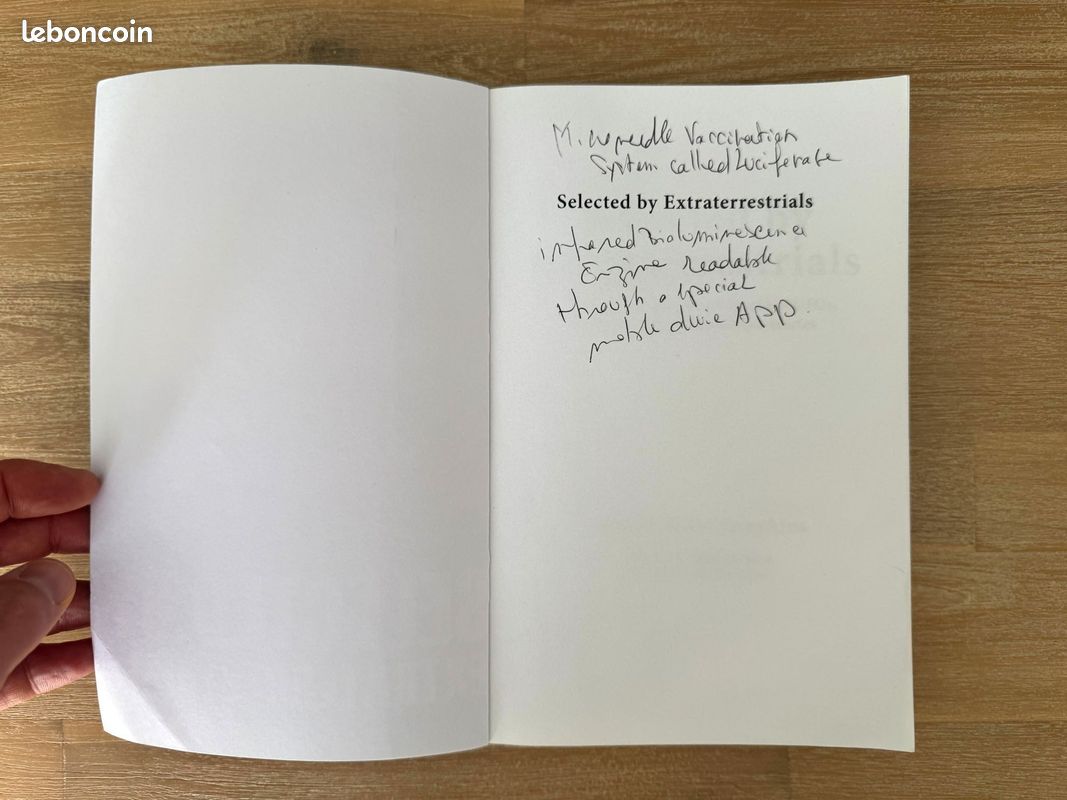 leboncoin
Microneedle Vaccination
System called Luciferase
Selected by Extraterrestrials
infared Bioluminescence
Enzime readable
through a special
mobile App.